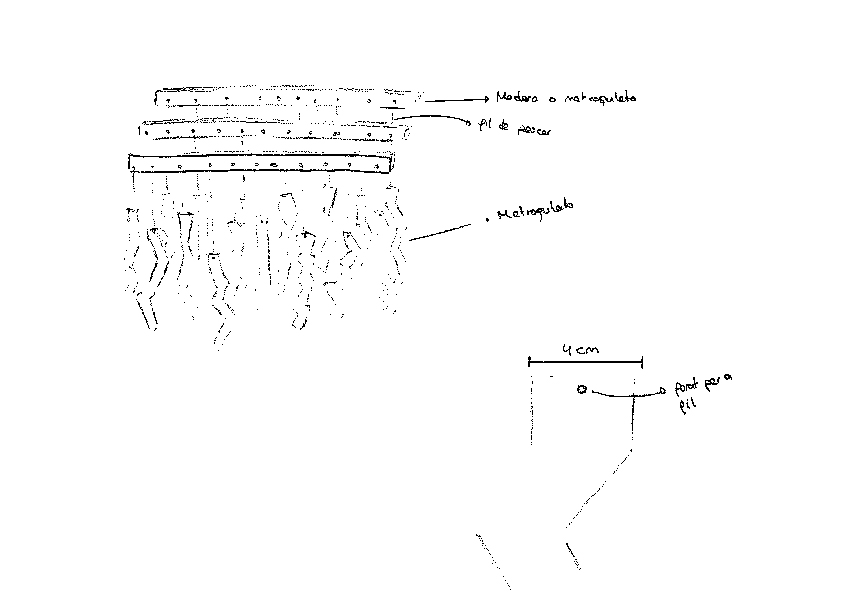 Madera o metraquilato
fil de pescar
Metraquilato
4 cm
forat per a
fil